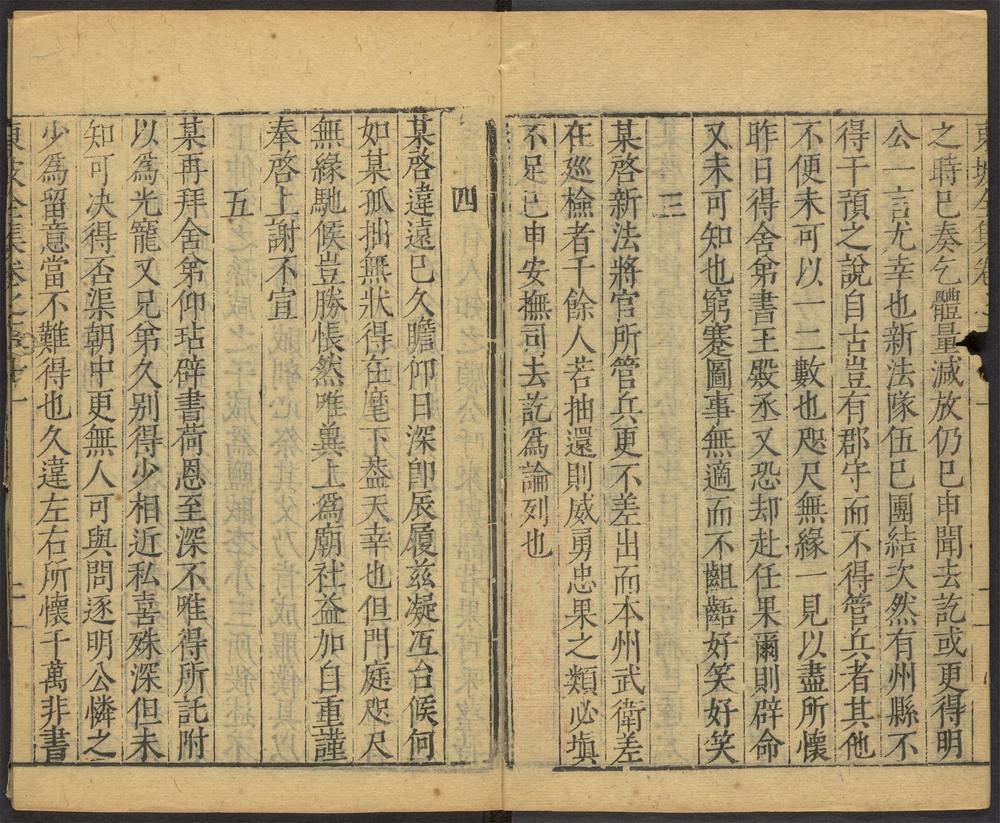 之時已奏乞體量減放仍已申聞去訖或更得明
公一言尤幸也新法隊伍已團結次然有州縣不
得干預之說自古豈有郡守而不得管兵者其他
不便未可以一二數也咫尺無緣一見以盡所懷
昨日得舍弟書王殿丞又恐却赴任果爾則辟命
又未可知也窮蹇圖事無適而不齟齬好笑好笑
三
某啓新法將官所管兵更不差出而本州武衛差
在巡檢者千餘人若抽還則威勇忠果之類必塡
不足已申安撫司去訖爲論列也
四
某啓違遠已久瞻仰日深卽辰履兹凝冱台候何
如某孤拙無狀得在麾下葢天幸也但門庭咫尺
無緣馳候豈勝悵然唯兾上爲廟社益加自重謹
奉啓上謝不宣
五
某再拜舍弟仰玷辟書荷恩至深不唯得所託附
以爲光寵又兄弟久别得少相近私喜殊深但未
知可决得否渠朝中更無人可與問逐明公憐之
少爲留意當不難得也久違左右所懷千萬非書
東坡全集卷之